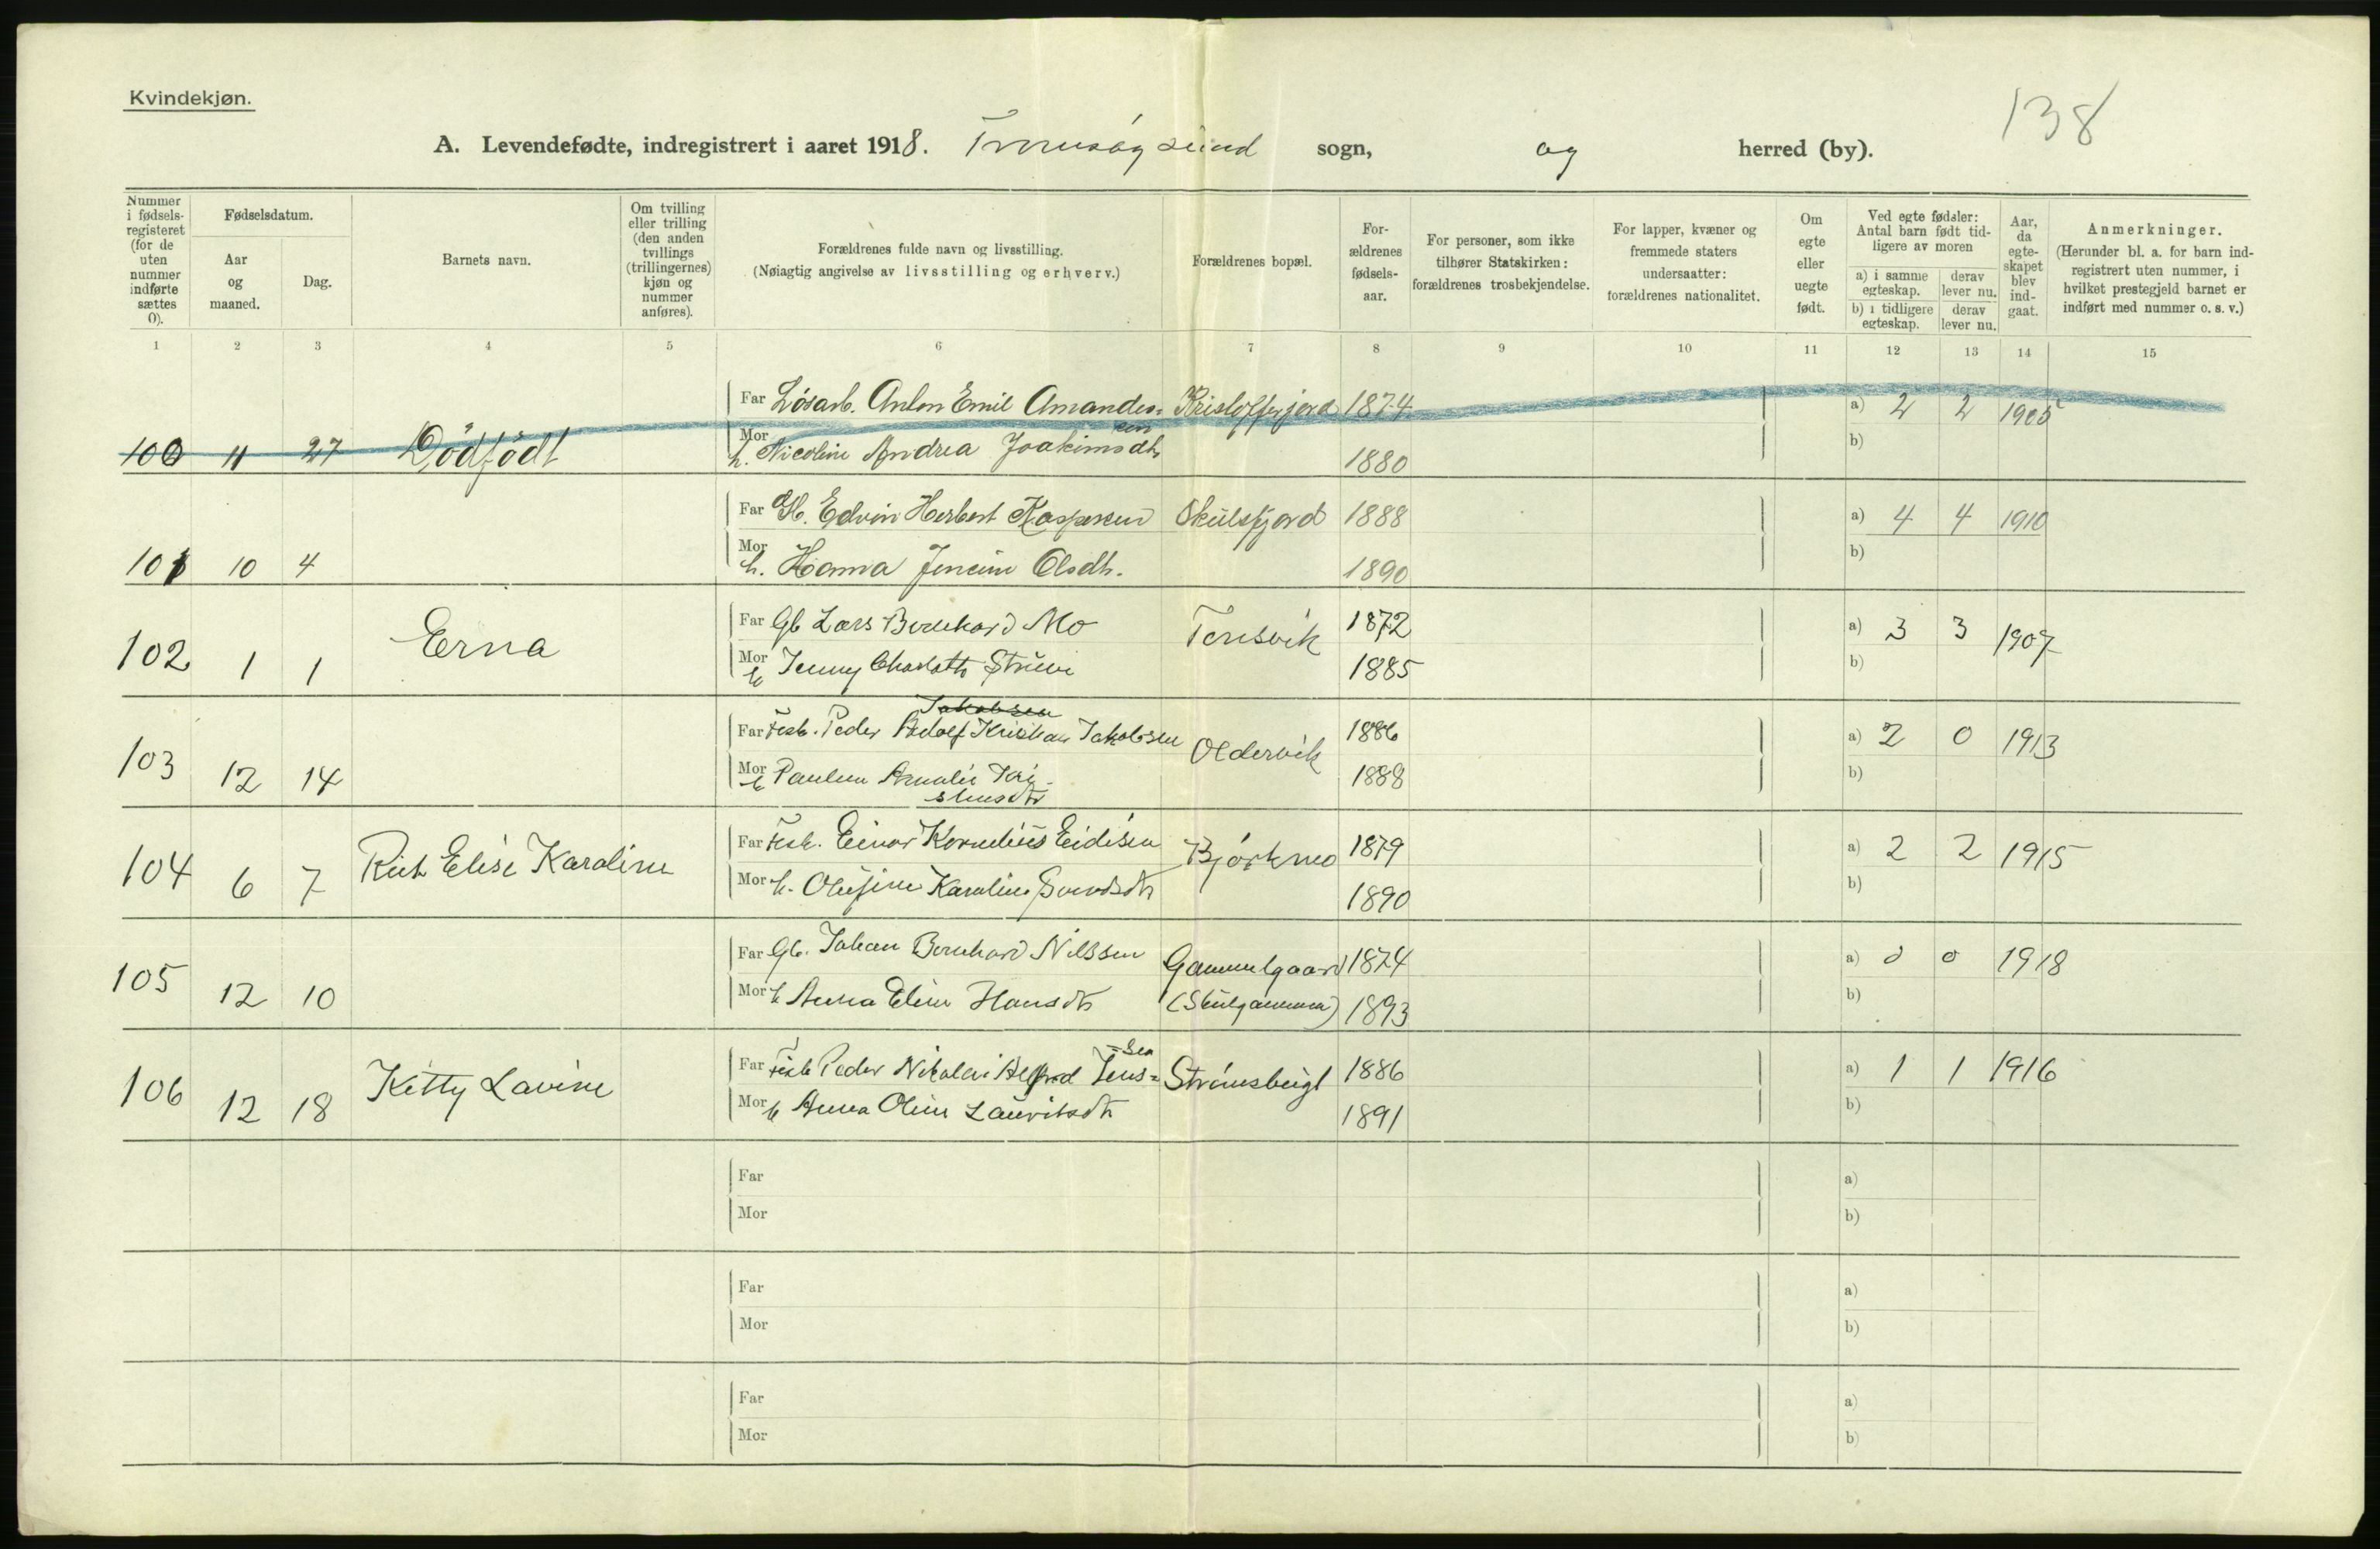 Kvindekjøn.
138
A. Levendefødte, indregistrert i aaret 1918. Tromsøysund sogn, og herred (by).
Nummer i fødselsregisteret (for de uten nummer indførte sættes 0).
Fødselsdatum.
Aar og maaned.
Dag.
Barnets navn.
Om tvilling eller trilling (den anden tvillings (trillingernes) kjøn og nummer anføres).
Forældrenes fulde navn og livsstilling.
(Nøiagtig angivelse av livsstilling og erhverv.)
Forældrenes bopæl.
Forældrenes fødselsaar.
For personer, som ikke tilhører Statskirken: forældrenes trosbekjendelse.
For lapper, kvæner og fremmede staters undersaatter: forældrenes nationalitet.
Om egte eller uegte født.
Ved egte fødsler: Antal barn født tidligere av moren
a) i samme egteskap.
derav lever nu.
b) i tidligere egteskap.
derav lever nu.
Aar, da egteskapet blev indgaat.
Anmerkninger.
(Herunder bl. a. for barn indregistrert uten nummer, i hvilket prestegjeld barnet er indført med nummer o. s. v.)
1 2 3 4 5 6 7 8 9 10 11 12 13 14 15
Far Løsarb. Anton Emil Amandus= Kristofferjord 1874 a) 2 2 1905
sen
100 11 27 Dødfødt Mor h. Nicoline Andrea Joakimsdtr 1880 b)
Far Gb. Edvin Herbert Kaspersen Skulsfjord 1888 a) 4 4 1910
101 10 4 Mor h. Hanna Jensine Olsdtr. 1890 b)
Far Gb Lars Bernhard Mo Tønsvik 1872 a) 3 3 1907
102 1 1 Erna Mor h Jenny Charlotte 1885 b)
Jakobsen
Far Fisk. Peder Adolf Kristian Jakobsen Oldervik 1886 a) 2 0 1913
103 12 14 Mor h Pauline Amalie 1888 b)
Far Fisk. Einar Kornelius Eidisen Bjørkmo 1879 a) 2 2 1915
104 6 7 Rut Elise Karoline Mor h. Olufine Karoline 1890 b)
Far Gb. Johan Bernhard Nilssen Gammelgaard 1874 a) 0 0 1918
105 12 10 Mor h Anna Eline Hansdtr (Skulgammen) 1893 b)
sen
Far Fisk Peder Nikolai Alfred Jens= Strømsbugt 1886 a) 1 1 1916
106 12 18 Kitty Lavine Mor h Anna Oline Lauritsdtr 1891 b)
Far a)
Mor b)
Far a)
Mor b)
Far a)
Mor b)